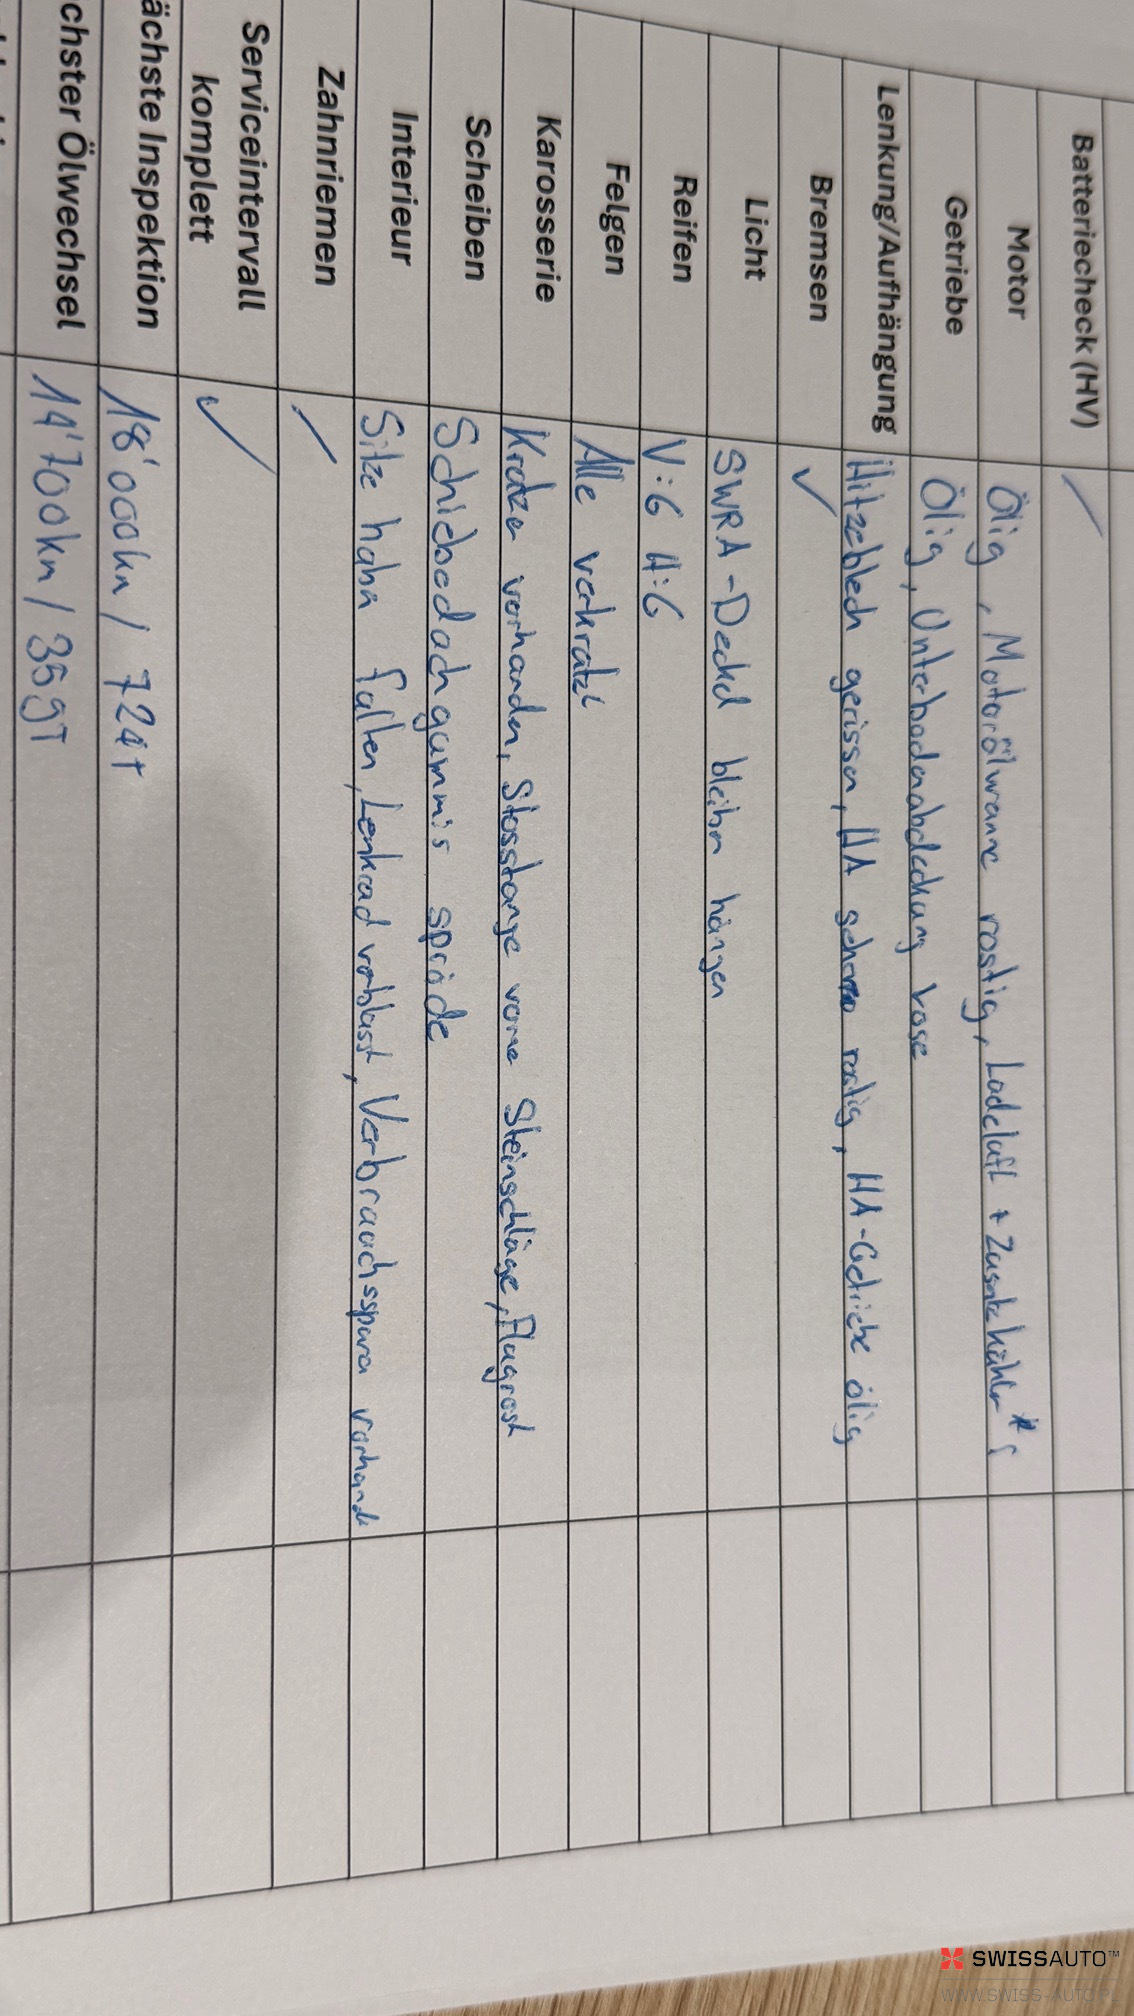 Batteriecheck (HV) /
Motor Ölig, Motorölwanne rostig, Ladeluft + Zusatzkühler *
Getriebe Ölig, Unterbodenabdeckung lose
Lenkung/Aufhängung Hitzeblech gerissen, HA rostig, HA-Getriebe ölig
Bremsen ✓
Licht SWRA-Deckel bleiben hängen
Reifen V:6 H:6
Felgen Alle verkratzt
Karosserie Kratzer vorhanden, Stosstange vorne Steinschläge, Flugrost
Scheiben Schiebedachgummis spröde
Interieur Sitze haben falten, Lenkrad verblasst, Verbrauchsspuren vorhand
Zahnriemen /
Serviceintervall
komplett ✓
ächste Inspektion 18'000km / 724T
chster Ölwechsel 14'700km / 359T
SWISSAUTO™
WWW.SWISS-AUTO.PL